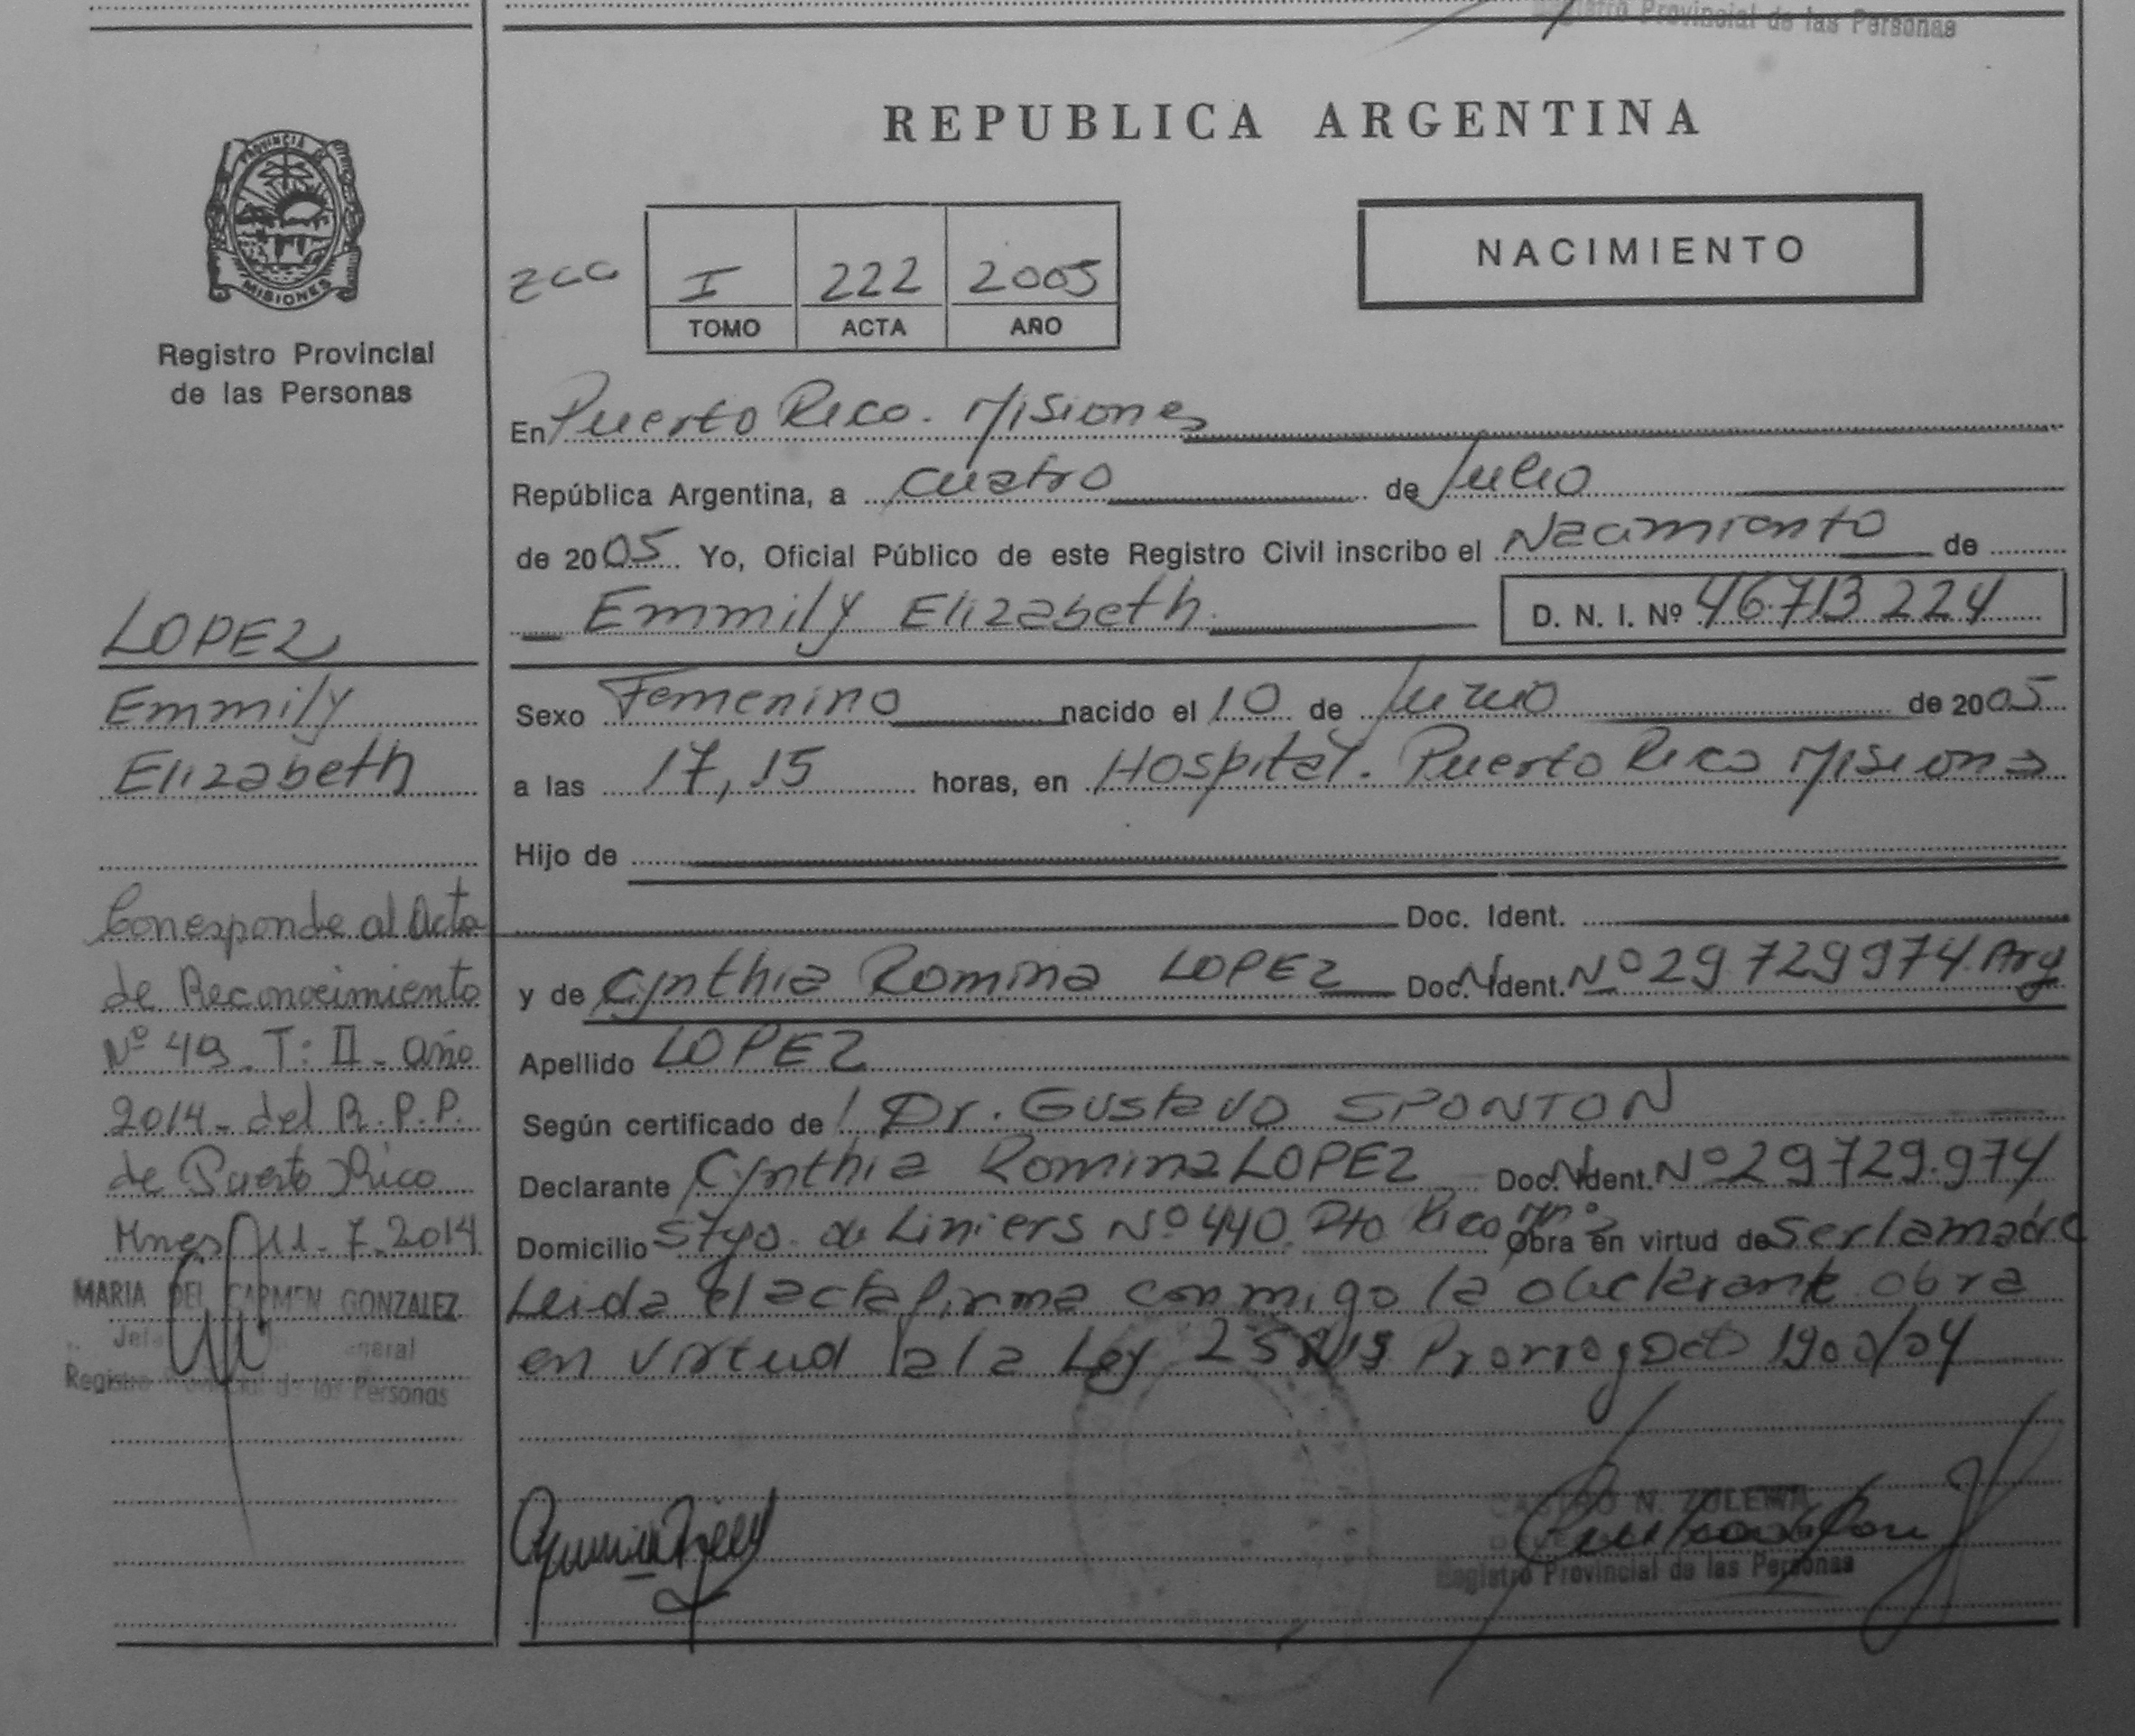 Registro Provincial de las Personas
REPUBLICA ARGENTINA
PROVINCIA DE
MISIONES
Registro Provincial
de las Personas
I 222 2005
TOMO ACTA AÑO
NACIMIENTO
En Puerto Rico. Misiones
República Argentina, a cuatro de Julio
de 2005 Yo, Oficial Público de este Registro Civil inscribo el Nacimiento de
Emmily Elizabeth D. N. I. Nº 46.713.224
Sexo Femenino nacido el 10 de Junio de 2005
a las 17,15 horas, en Hospital. Puerto Rico Misiones
Hijo de
Doc. Ident.
y de Cynthia Romina LOPEZ Doc. Ident. Nº 29.729.974. Arg
Apellido LOPEZ
Según certificado de Dr. Gustavo SPONTON
Declarante Cynthia Romina LOPEZ Doc. Ident. Nº 29.729.974
Domicilio Stgo. de Liniers Nº 440. Pto Rico Mnes Obra en virtud de ser la madre
Leida el acta firma conmigo la declarante obra
en virtud a la Ley Prorrog Dcto 1900/04
CASTRO N. ZULEMA
Registro Provincial de las Personas
LOPEZ
Emmily
Elizabeth
Corresponde al Acta
de Reconocimiento
Nº 49 - T: II - año
2014 - del R.P.P.
de Puerto Rico
Mnes 11-7-2014
MARIA DEL CARMEN GONZALEZ
Registro Provincial de las Personas